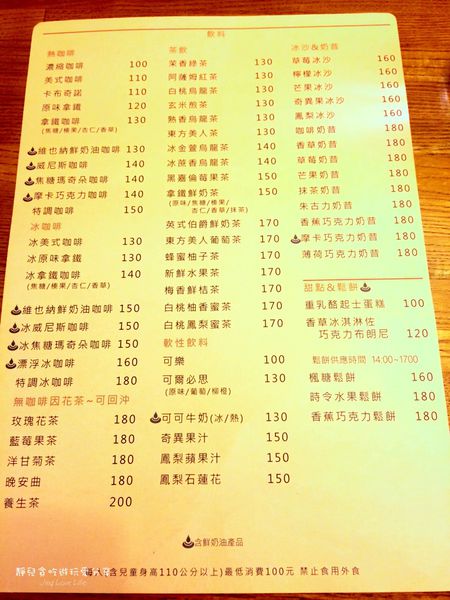 飲料
熱咖啡
濃縮咖啡 100
美式咖啡 110
卡布奇諾 110
原味拿鐵 120
拿鐵咖啡 130
(焦糖/榛果/杏仁/香草)
維也納鮮奶油咖啡 130
威尼斯咖啡 140
焦糖瑪奇朵咖啡 140
摩卡巧克力咖啡 140
特調咖啡 150
冰咖啡
冰美式咖啡 130
冰原味拿鐵 130
冰拿鐵咖啡 140
(焦糖/榛果/杏仁/香草)
維也納鮮奶油咖啡 150
冰威尼斯咖啡 150
冰焦糖瑪奇朵咖啡 150
漂浮冰咖啡 160
特調冰咖啡 180
無咖啡因花茶~可回沖
玫瑰花茶 180
藍莓果茶 180
洋甘菊茶 180
晚安曲 180
養生茶 200
茶飲
茉香綠茶 130
阿薩姆紅茶 130
白桃烏龍茶 130
玄米煎茶 130
熱香烏龍茶 130
東方美人茶 130
冰金萱烏龍茶 130
冰蔗香烏龍茶 130
黑嘉倫莓果茶 150
拿鐵鮮奶茶 150
(原味/焦糖/榛果/
杏仁/香草/抹茶)
英式伯爵鮮奶茶 170
東方美人葡萄茶 170
蜂蜜柚子茶 170
新鮮水果茶 170
梅香鮮桔茶 170
白桃柚香蜜茶 170
白桃鳳梨蜜茶 170
軟性飲料
可樂 100
可爾必思 130
(原味/葡萄/柳橙)
可可牛奶(冰/熱) 130
奇異果汁 150
鳳梨蘋果汁 150
鳳梨石蓮花 150
冰沙&奶昔
草莓冰沙 160
檸檬冰沙 160
芒果冰沙 160
奇異果冰沙 160
鳳梨冰沙 160
咖啡奶昔 180
香草奶昔 180
草莓奶昔 180
芒果奶昔 180
抹茶奶昔 180
朱古力奶昔 180
香蕉巧克力奶昔 180
摩卡巧克力奶昔 180
薄荷巧克力奶昔 180
甜點&鬆餅
重乳酪起士蛋糕 100
香草冰淇淋佐
巧克力布朗尼 120
鬆餅供應時間 14:00~1700
楓糖鬆餅 160
時令水果鬆餅 180
香蕉巧克力鬆餅 180
含鮮奶油產品
人(含兒童身高110公分以上)最低消費100元 禁止食用外食
Jing Love Life